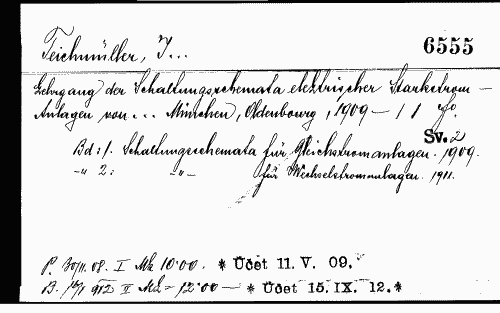 Teichmüller, J...
6555
Lehrgang der Schaltungsschemata elektrischer Starkstrom-
Anlagen von... München, Oldenbourg, 1909 — 11 fo.
Sv. 2
Bd: 1. Schaltungsschemata für Gleichstromanlagen. 1909.
-"- 2: -"- für Wechselstromanlagen. 1911.
P. 30/11. 08. I Mk 10·00. * Účet 11. V. 09.
B. 912 II Mk = 12·00 — * Účet 15. IX. 12.*